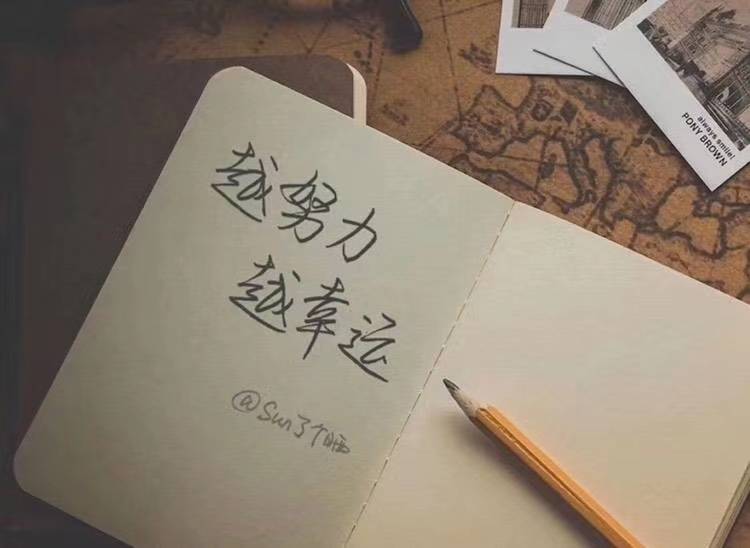 越努力
越幸运
@Sun了个晒
always smile!
PONY BROWN